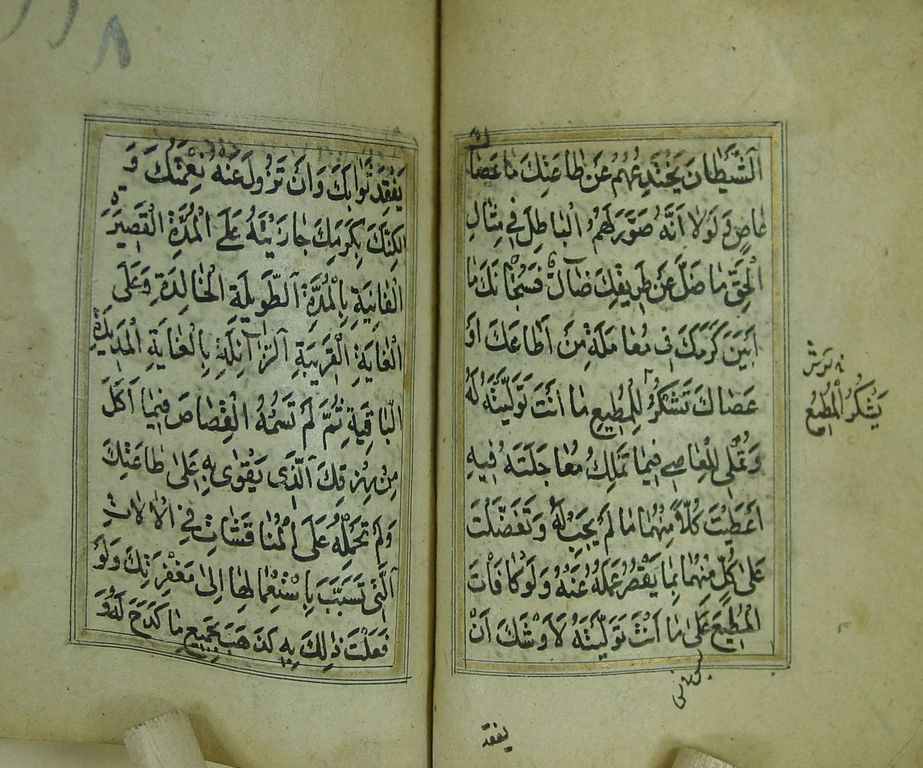 الشَّيْطَانَ يَخْتَدِعُهُمْ عَنْ طَاعَتِكَ مَا عَصَاكَ
عَاصٍ وَلَوْلَا أَنَّهُ صَوَّرَ لَهُمُ الْبَاطِلَ فِي مِثَالِ
الْحَقِّ مَا ضَلَّ عَنْ طَرِيقِكَ ضَالٌّ فَسُبْحَانَكَ مَا
أَبْيَنَ كَرَمَكَ فِي مُعَامَلَةِ مَنْ أَطَاعَكَ أَوْ
عَصَاكَ تَشْكُرُ لِلْمُطِيعِ مَا أَنْتَ تَوَلَّيْتَهُ لَهُ
وَتُمْلِي لِلْعَاصِي فِيمَا تَمْلِكُ مُعَاجَلَتَهُ فِيهِ
أَعْطَيْتَ كُلًّا مِنْهُمَا مَا لَمْ يَجِبْ لَهُ وَتَفَضَّلْتَ
عَلَى كُلٍّ مِنْهُمَا بِمَا يَقْصُرُ عَمَلُهُ عَنْهُ وَلَوْ كَافَأْتَ
الْمُطِيعَ عَلَى مَا أَنْتَ تَوَلَّيْتَهُ لَأَوْشَكَ أَنْ
يَشْكُرُ الْمُطِيعُ
يفقد
يَفْقِدَ ثَوَابَكَ وَأَنْ تَزُولَ عَنْهُ نِعْمَتُكَ وَ
لٰكِنَّكَ بِكَرَمِكَ جَازَيْتَهُ عَلَى الْمُدَّةِ الْقَصِيرَةِ
الْفَانِيَةِ بِالْمُدَّةِ الطَّوِيلَةِ الْخَالِدَةِ وَعَلَى
الْغَايَةِ الْقَرِيبَةِ الزَّائِلَةِ بِالْغَايَةِ الْمَدِيدَةِ
الْبَاقِيَةِ ثُمَّ لَمْ تَسُمْهُ الْقِصَاصَ فِيمَا أَكَلَ
مِنْ رِزْقِكَ الَّذِي يَقْوَى بِهِ عَلَى طَاعَتِكَ
وَلَمْ تَحْمِلْهُ عَلَى الْمُنَاقَشَاتِ فِي الْآلَاتِ
الَّتِي تَسَبَّبَ بِاسْتِعْمَالِهَا إِلَى مَغْفِرَتِكَ وَلَوْ
فَعَلْتَ ذٰلِكَ بِهِ لَذَهَبَ بِجَمِيعِ مَا كَدَحَ لَهُ وَ